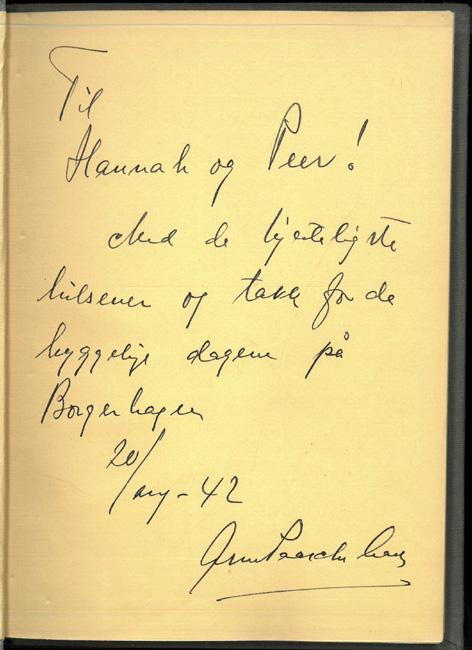 Til
Hannah og Peer!
Med de hjerteligste
hilsener og takk for de
hyggelige dagene på
Borgenhagen
20/aug - 42
Arne Paasche Aasen